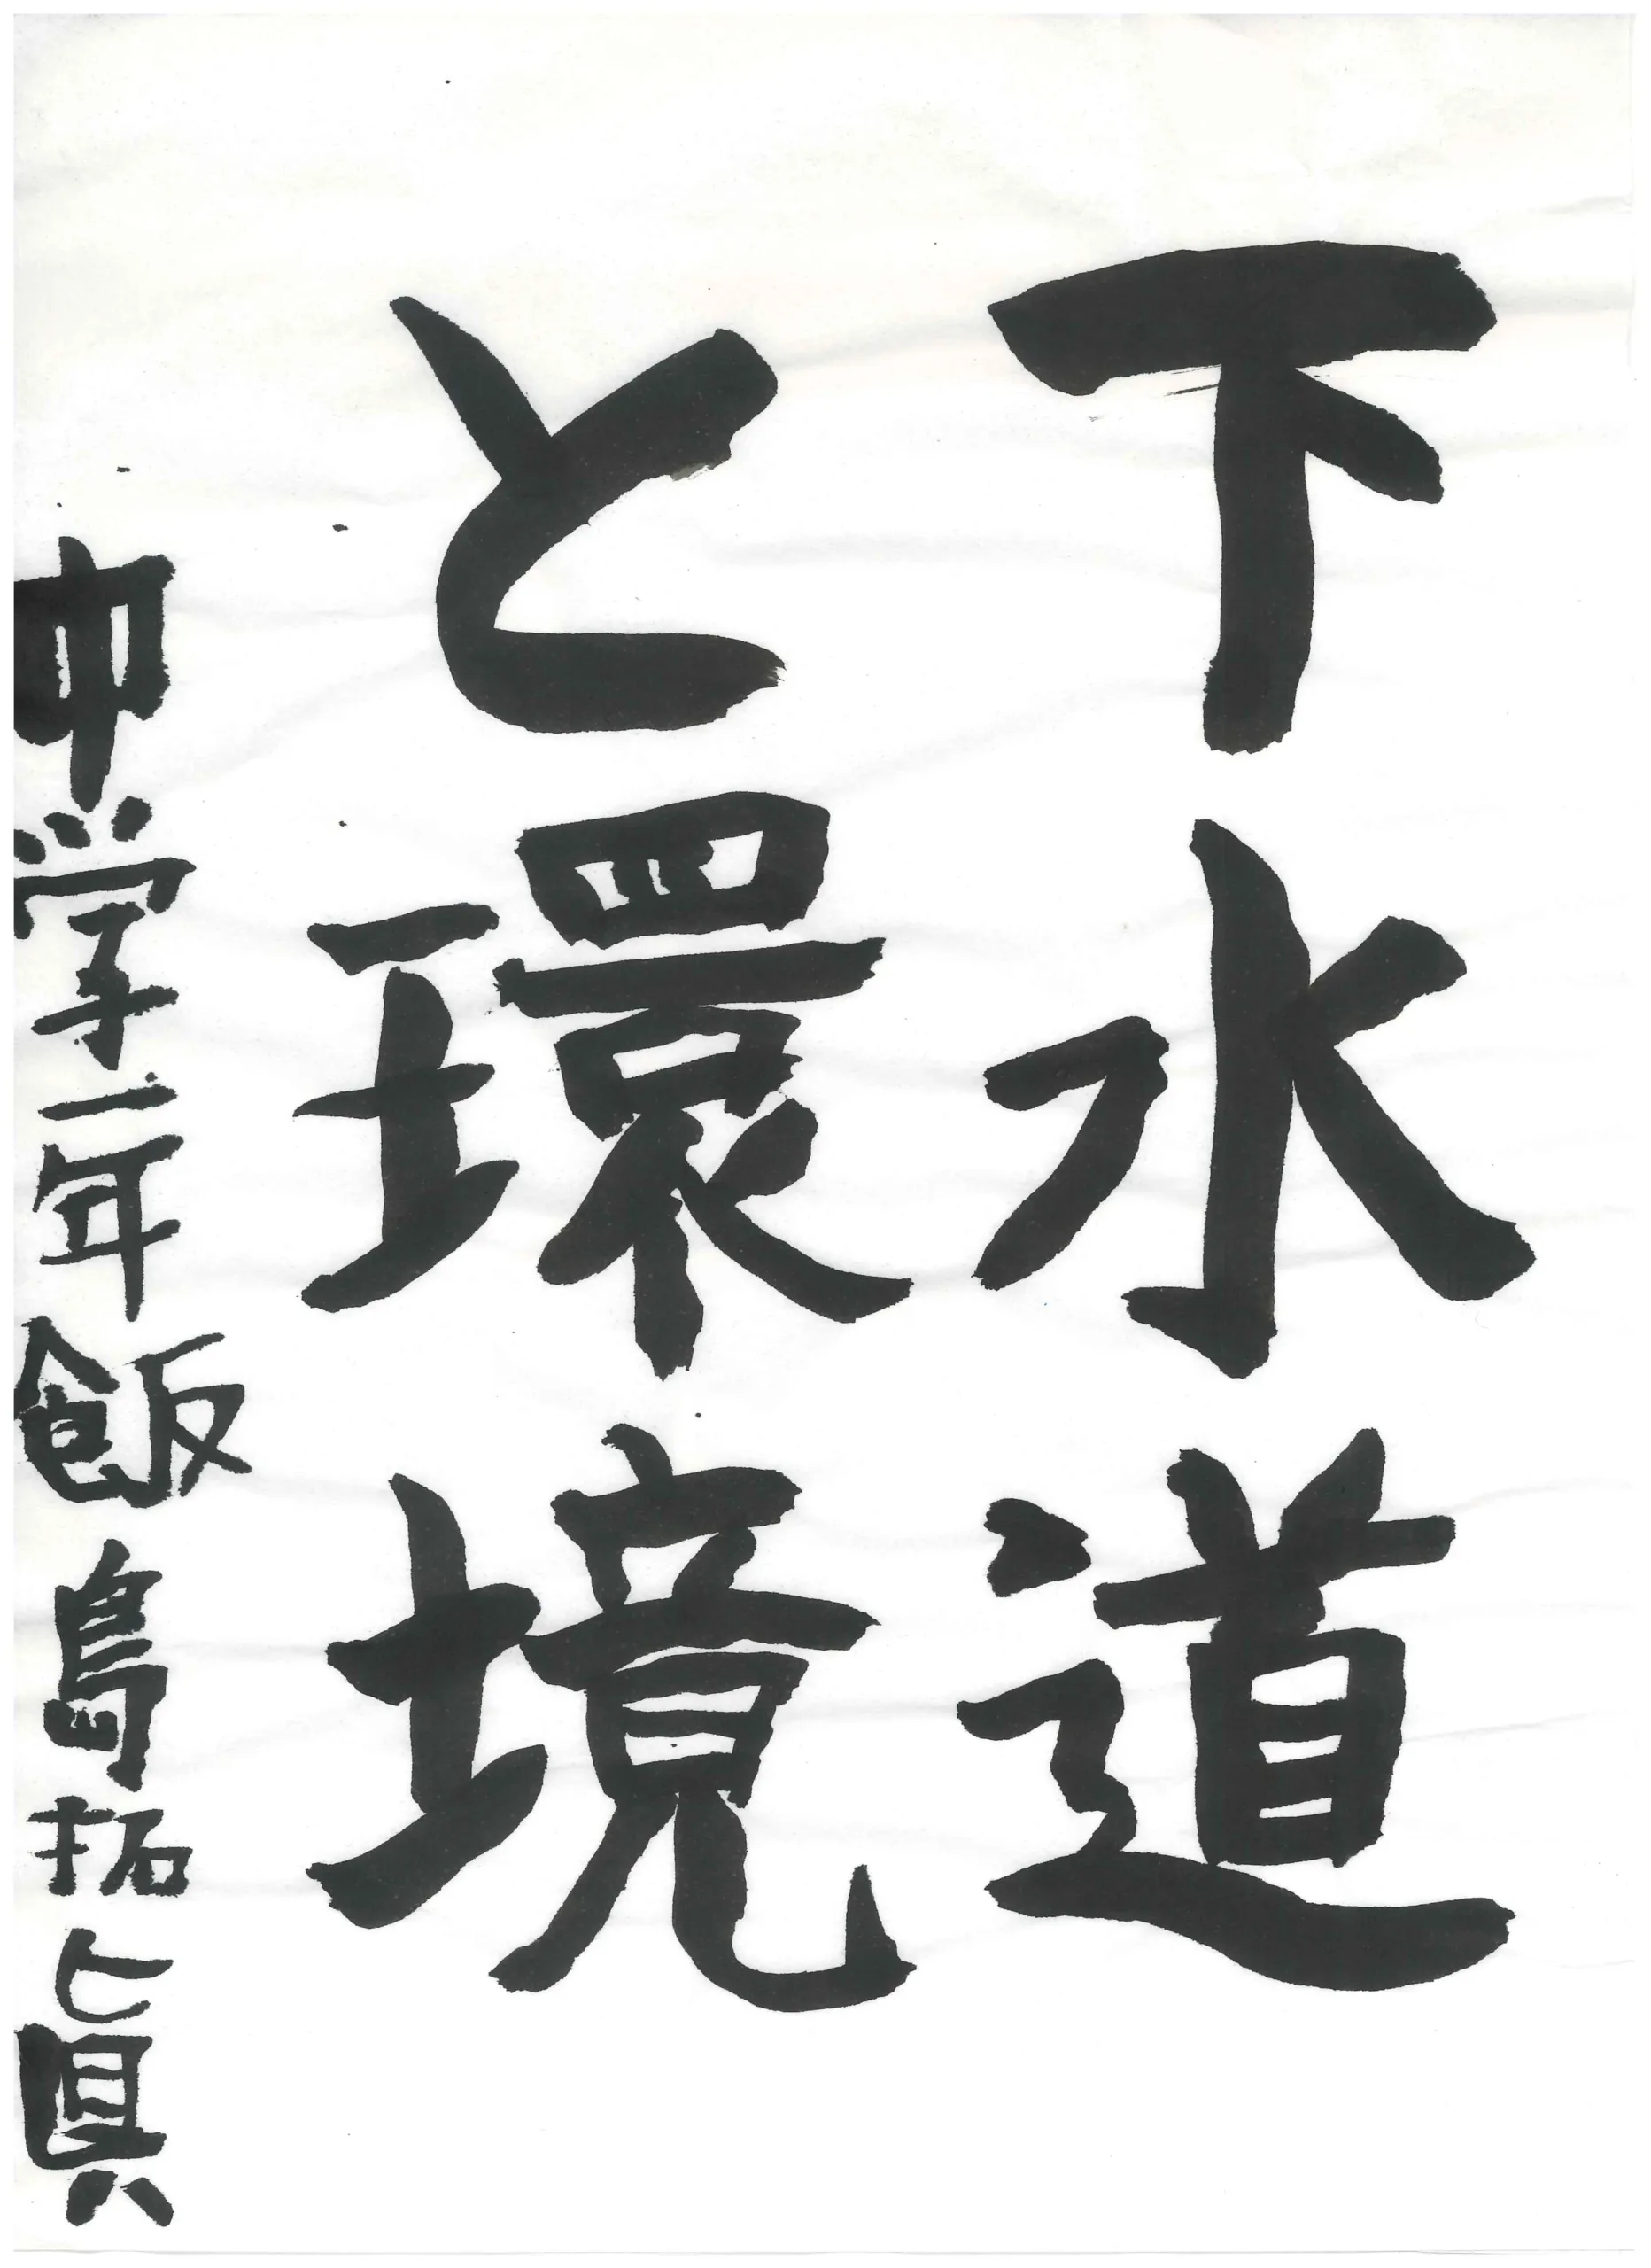 下水道
と環境
中学一年飯島拓眞